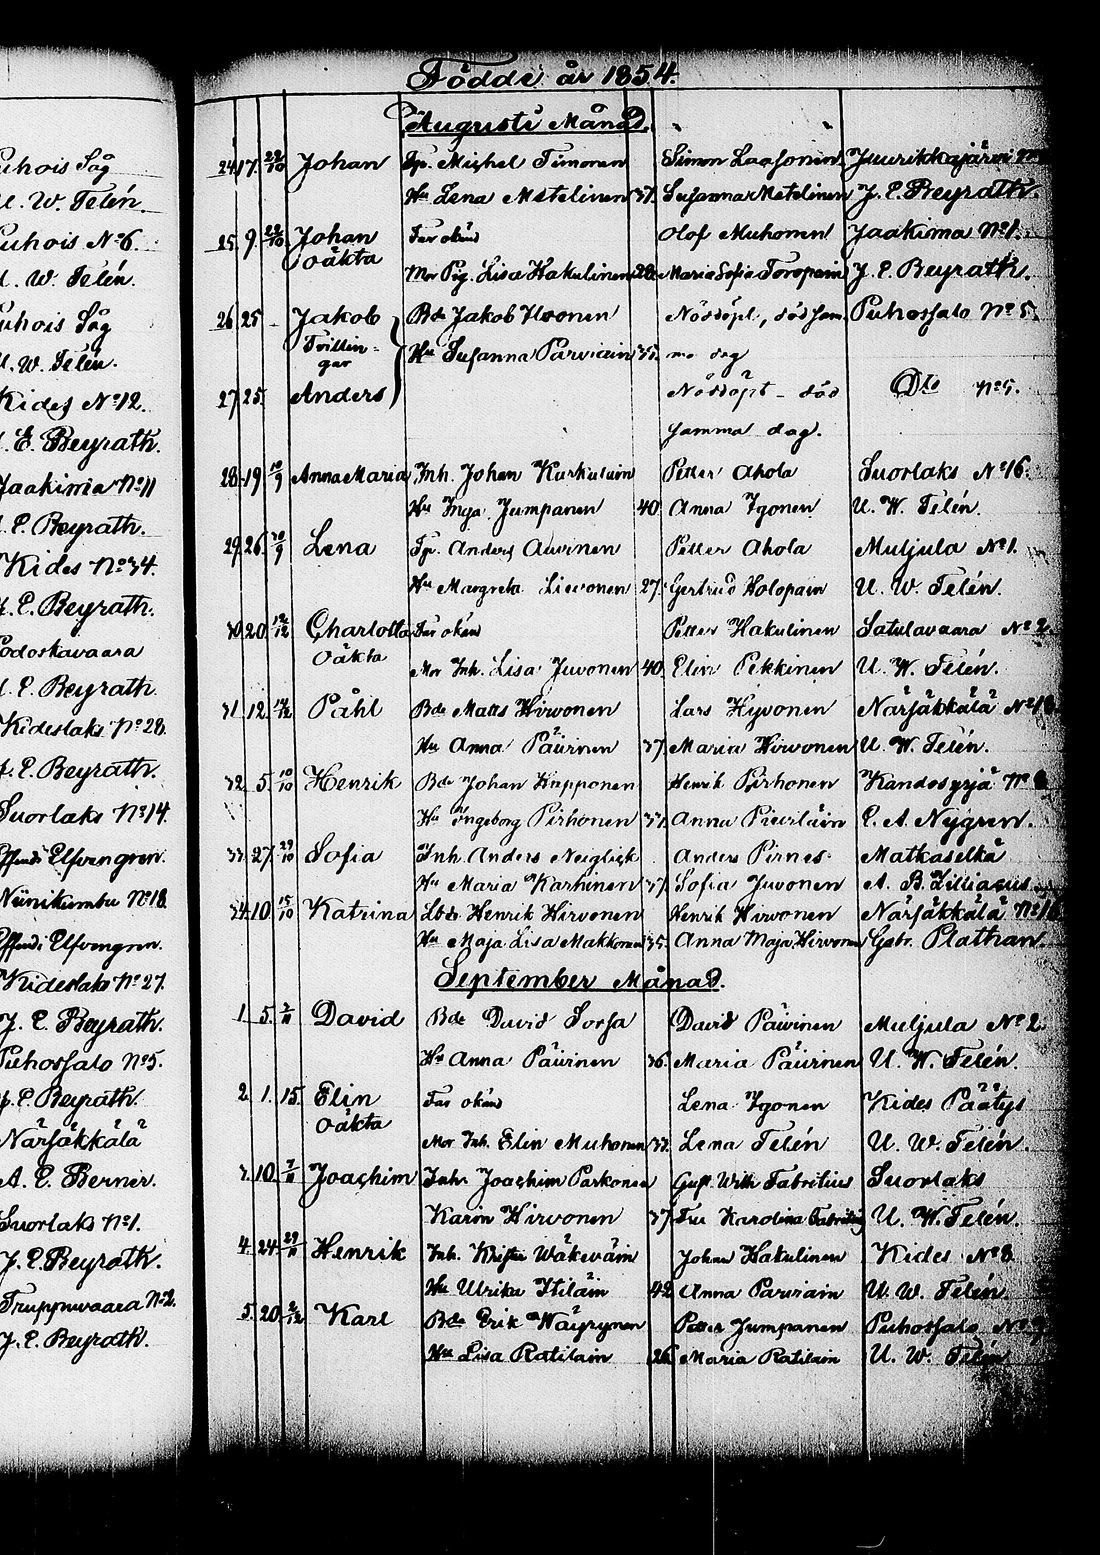 Puhois Såg
U. W. Telén.
Puhois No 6.
U. W. Telén.
Puhois Såg
U. W. Telén.
Kides No 12.
J. E. Beyrath.
Jaakima No 11
J. E. Beyrath.
Kides No 34.
J. E. Beyrath.
Podoskavaara
J. E. Beyrath.
Kideslaks No 28.
J. E. Beyrath.
Suorlaks No 14.
Elfvengren.
Niinikumbu No 18.
Elfvengren.
Kideslaks No 27.
J. E. Beyrath.
Puhossalo No 5.
J. E. Beyrath.
Närsäkkälä
A. E. Berner.
Suorlaks No 1.
J. E. Beyrath.
Truppuvaara No 2.
J. E. Beyrath.
Födde år 1854.
Augusti Månad.
24 17. 22/10 Johan Tp. Michel Timonen Simon Laasonen Juurikkajärvi No
Hu Lena Matelinen 31. Susanna Matelinen J. E. Beyrath.
25 9. 22/10 Johan Far okänd Olof Muhonen Jaakima No 1.
oäkta Mor Pig. Lisa Hakulinen 28. Maria Sofia Toropain J. E. Beyrath.
26 25 - Jakob Bde Jakob Ikonen Nöddöpt, död sam- Puhossalo No 5.
Tvillin- Hu Susanna Parviain 35. ma dag
gar
27 25. Anders Nöddöpt - död Dto No 5.
samma dag.
28 19 10/9 Anna Maria Inh. Johan Karkulain Petter Ahola Suorlaks No 16.
Hu Inga Jumpanen 40 Anna Igonen U. W. Telén.
29. 26. 30/9 Lena Tp. Anders Auvinen Petter Ahola Muljula No 1.
Hu Margreta Lievonen 27. Gertrud Holopain U. W. Telén.
30 20. 12/12 Charlotta Far okänd Petter Hakulinen Satulavaara No 2.
oäkta Mor Inh. Lisa Juvonen 40. Elin Pekkinen U. W. Telén.
31 12. Påhl Bde Matts Hirvonen Lars Hyvonen Närsäkkälä No 18
Hu Anna Päivinen 37. Maria Hirvonen U. W. Telén.
32 5. 10/10 Henrik Bde Johan Happonen Henrik Pirhonen Kandosyrjä No
Hu Ingeborg Pirhonen 31. Anna Puurtiäin E. A. Nygren.
33 27. 29/10 Sofia Inh. Anders Neiglick Anders Pirnes Matkaselkä
Hu Maria Karhinen 37. Sofia Juvonen A. B. Zilliacus.
34 10 15/10 Katrina Lbd. Henrik Hirvonen Henrik Hirvonen Närsäkkälä No 16
Hu Maja Lisa Makkonen 35. Anna Maja Hirvonen Gabr. Plathan.
September Månad.
1. 5. David Bde David Sorsa David Päivinen Muljula No 2.
Hu Anna Päivinen 36. Maria Päivinen U. W. Telén.
2. 1. 15. Elin Far okänd Lena Igonen Kides Päätys
oäkta Mor Inh. Elin Muhonen 32. Lena Telén U. W. Telén.
3. 10. Joachim Inh. Joachim Parkonen Gust. Wilh Fabritius Suorlaks
Karin Hirvonen 37. Fru Karolina Fabritius U. W. Telén.
4. 24. Henrik Inh. Krister Wäkeväin Johan Hakulinen Kides No 8.
Hu Ulrika Itiläin 42 Anna Parviain U. W. Telén.
5. 20. 2/12 Karl Bde Erik Wäyrynen Petter Jumpanen Puhossalo No
Hu Lisa Ratilain 26. Maria Ratilain U. W. Telén